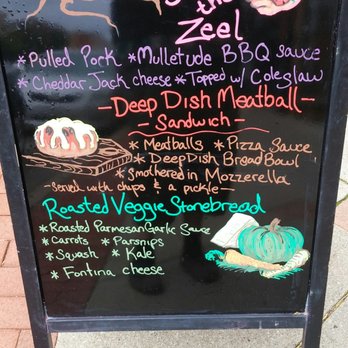 the
Zeel
*Pulled Pork *Mulletude BBQ Sauce
*Cheddar Jack cheese *Topped w/ Coleslaw
-Deep Dish Meatball-
-Sandwich-
*Meatballs *Pizza Sauce
*Deep Dish Bread Bowl
*Smothered in Mozzerella
-Served with chips & a pickle-
Roasted Veggie Stonebread
*Roasted Parmesan Garlic Sauce
*Carrots *Parsnips
*Squash *Kale
*Fontina cheese